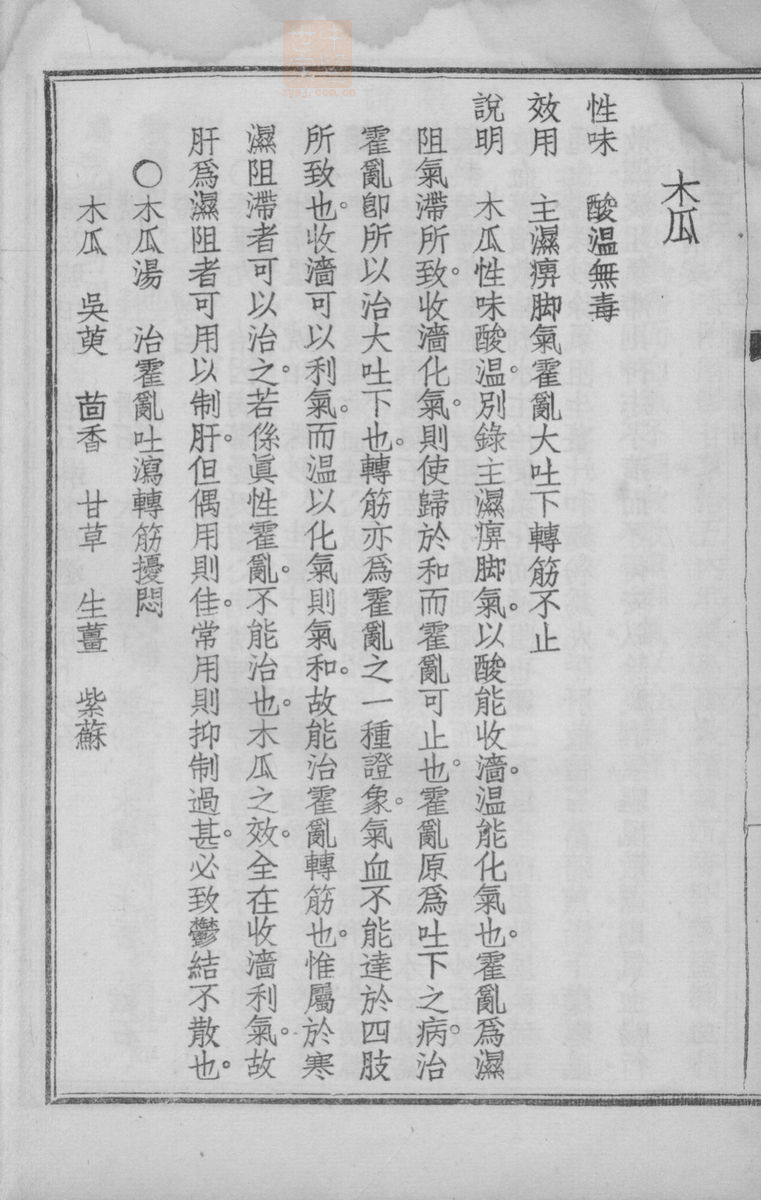 木瓜
性味　酸温無毒
效用　主濕痹脚氣霍亂大吐下轉筋不止
說明　木瓜性味酸温。別錄主濕痹脚氣。以酸能收濇。温能化氣也。霍亂爲濕
阻氣滯所致。收濇化氣。則使歸於和而霍亂可止也。霍亂原爲吐下之病。治
霍亂卽所以治大吐下也。轉筋亦爲霍亂之一種證象。氣血不能達於四肢
所致也。收濇可以利氣。而温以化氣則氣和。故能治霍亂轉筋也。惟屬於寒
濕阻滯者可以治之。若係眞性霍亂。不能治也。木瓜之效。全在收濇利氣。故
肝爲濕阻者可用以制肝。但偶用則佳。常用則抑制過甚。必致鬱結不散也。
○木瓜湯　治霍亂吐瀉轉筋擾悶
木瓜　吳萸　茴香　甘草　生薑　紫蘇